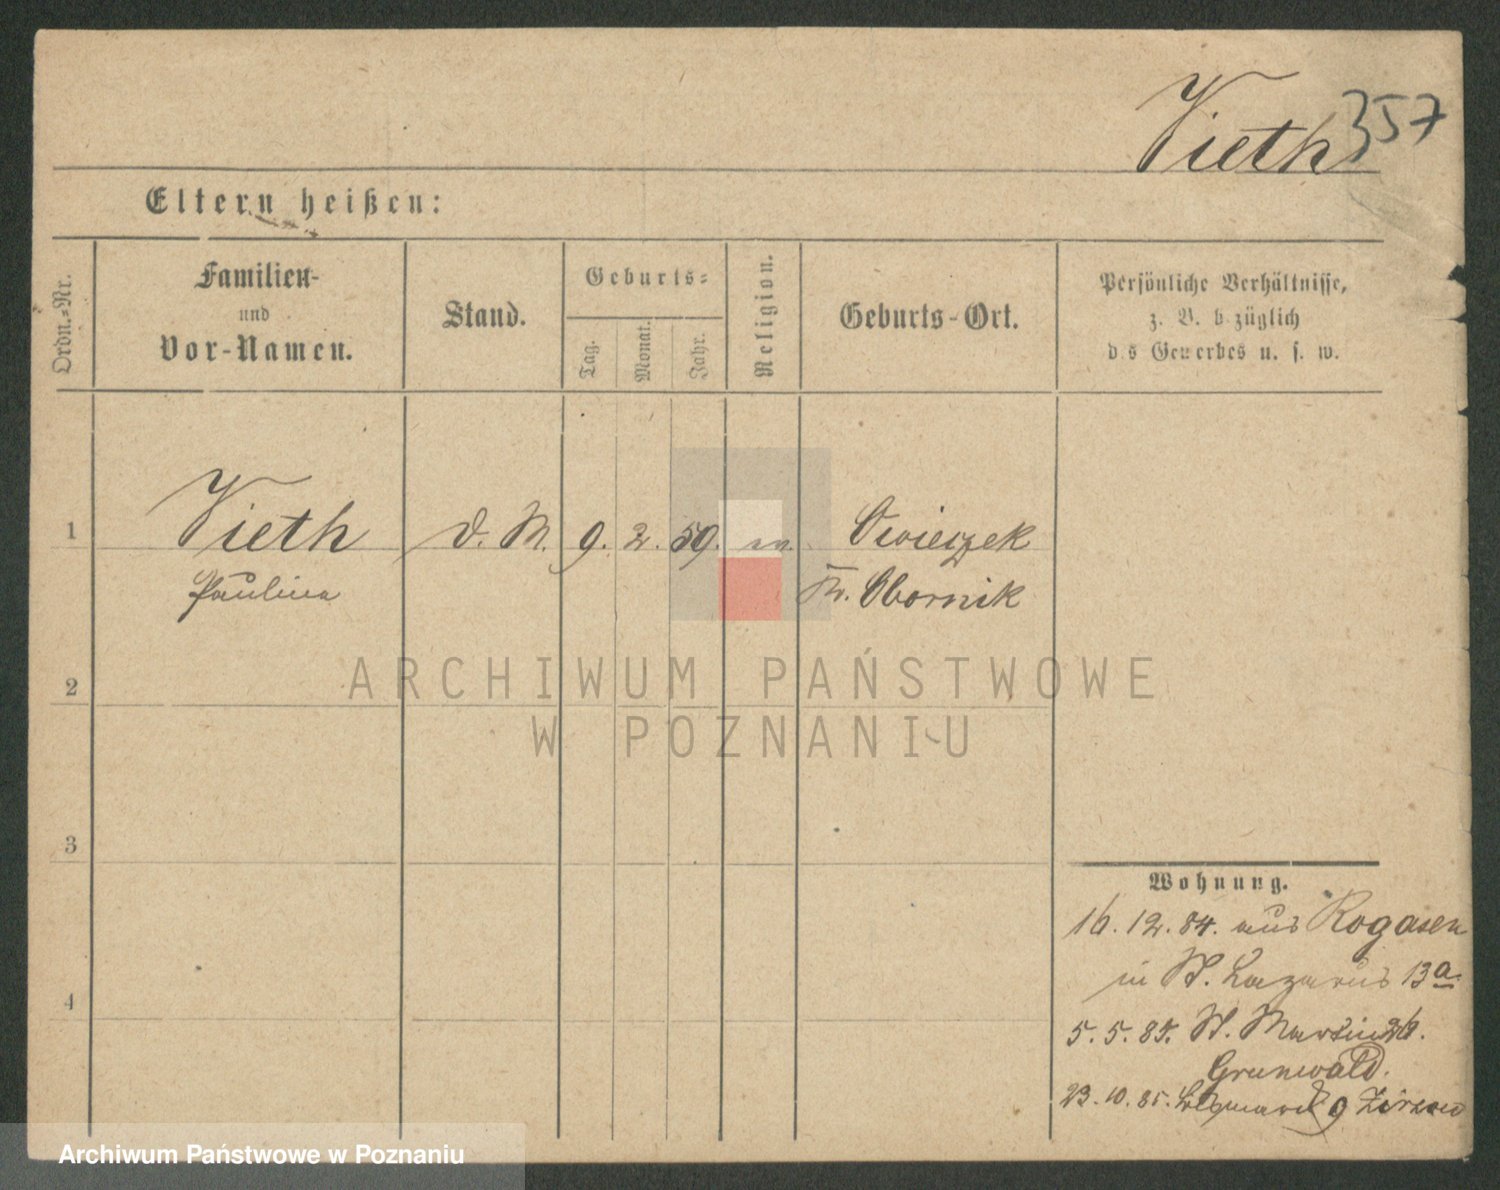 Vieth 357
Eltern heißen:
Ordn.=Nr.
Familien-
und
Vor-Namen.
Stand.
Geburts=
Tag.
Monat.
Jahr.
Religion.
Geburts-Ort.
Persönliche Verhältnisse,
z. B. b züglich
d s Gewerbes u. s. w.
1 Vieth d. M. 9. 2. 59. ev.
Paulina Kr. Obornik
2
3
4
Wohnung.
16. 12. 84. aus Rogasen
in St. Lazarus 13a.
5. 5. 85. St. Martin 26.
Grunwald.
23. 10. 85. 9
ARCHIWUM PAŃSTWOWE
W POZNANIU
Archiwum Państwowe w Poznaniu